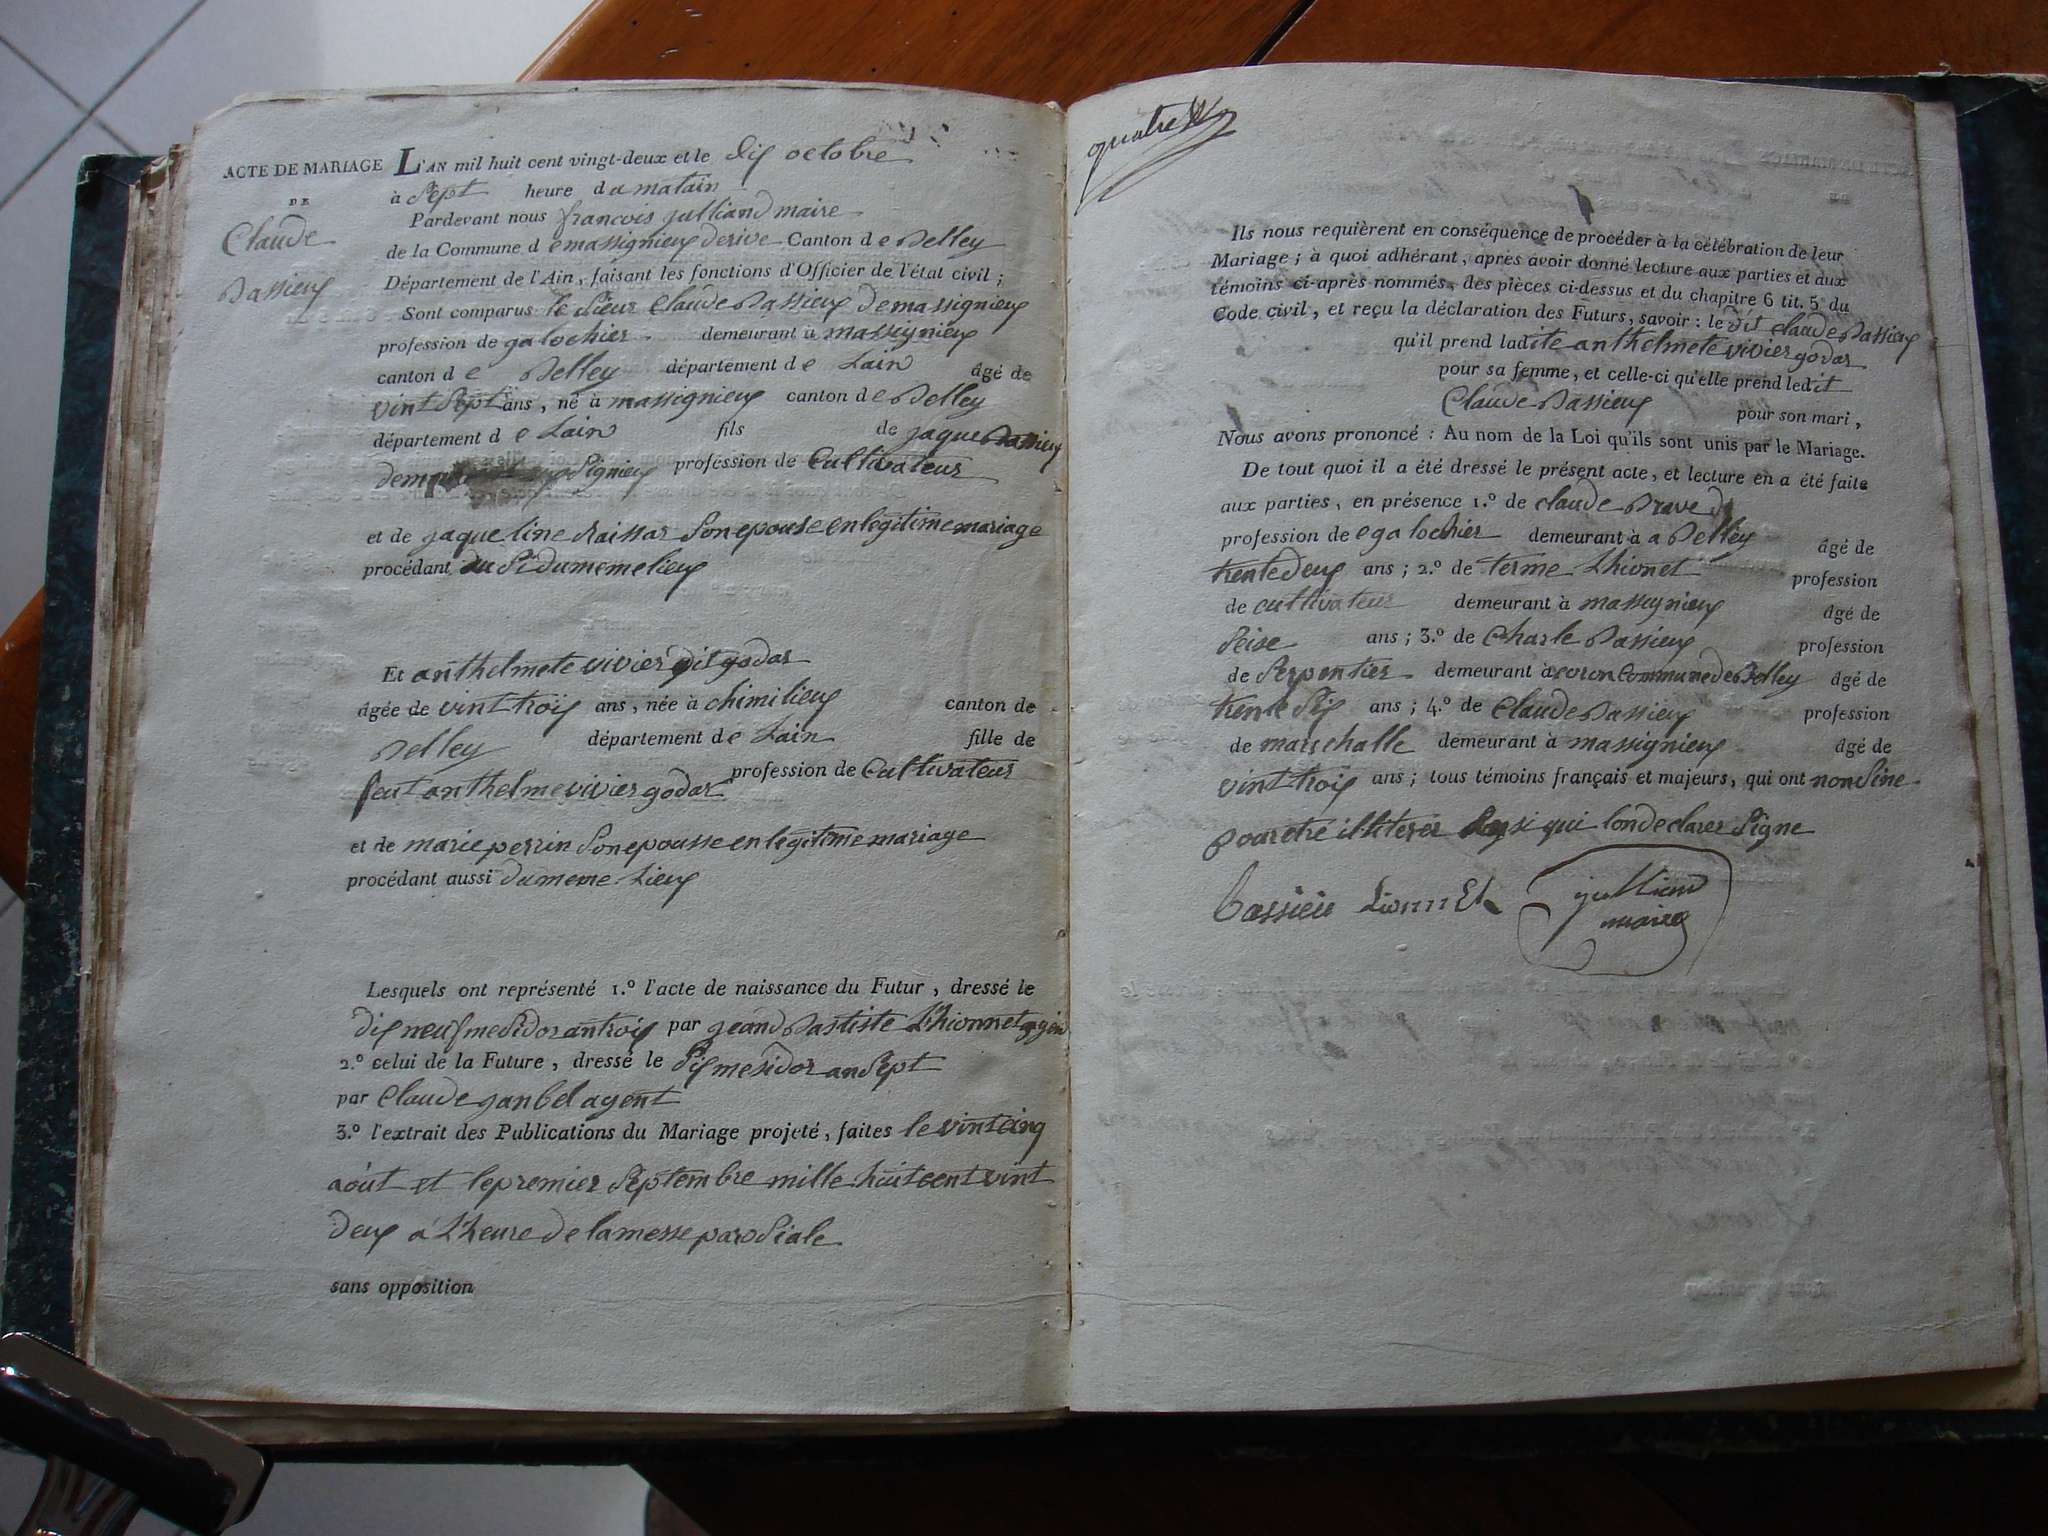 ACTE DE MARIAGE
DE
Claude
Bassieux
L'AN mil huit cent vingt-deux et le dix octobre
à Sept heure du matain
Pardevant nous francois julliand maire
de la Commune de massignieux derive Canton de Belley
Département de l'Ain, faisant les fonctions d'Officier de l'état civil ;
Sont comparus le Sieur Claude Bassieux de massignieux
profession de galochier demeurant à massignieux
canton de Belley département de Lain âgé de
vint Sept ans, né à massignieux canton de Belley
département de Lain fils de jaque Bassieux
de profession de Cultivateur
et de jaqueline Son epouse en legitime mariage
procédant du meme lieux
Et anthelmete vivier dit godar
âgée de vint troix ans, née à chimilieux canton de
Belley département de Lain fille de
feut anthelme vivier godar profession de Cultivateur
et de marie perrin Son epousse en legitime mariage
procédant aussi du meme Lieux
Lesquels ont représenté 1.º l'acte de naissance du Futur, dressé le
dix neuf mesidor an troix par jeand Bastiste Lhionnet
2.º celui de la Future, dressé le Six mesidor an Sept
par Claude janbel agent
3.º l'extrait des Publications du Mariage projeté, faites le vint cinq
août et le premier Septembre mille huit cent vint
deux a L'heure de la messe parosiale
sans opposition
quatre
Ils nous requièrent en conséquence de procéder à la célébration de leur
Mariage ; à quoi adhérant, après avoir donné lecture aux parties et aux
témoins ci-après nommés, des pièces ci-dessus et du chapitre 6 tit. 5 du
Code civil, et reçu la déclaration des Futurs, savoir : le dit Claude Bassieux
qu'il prend ladite anthelmete vivier godar
pour sa femme, et celle-ci qu'elle prend ledit
Claude Bassieux pour son mari,
Nous avons prononcé : Au nom de la Loi qu'ils sont unis par le Mariage.
De tout quoi il a été dressé le présent acte, et lecture en a été faite
aux parties, en présence 1.º de claude
profession de egalochier demeurant à a Belley âgé de
trente deux ans ; 2.º de terme Lhionet profession
de cultivateur demeurant à massignieux âgé de
Seise ans ; 3.º de Charle Bassieux profession
de Serpentier demeurant à coron Commune de Belley âgé de
trente Six ans ; 4.º de Claude Bassieux profession
de marechalle demeurant à massignieux âgé de
vint troix ans ; tous témoins français et majeurs, qui ont non Sine
pour etre illiterer qui lon declarer Signe
Bassieu Lionnet julliand
maire